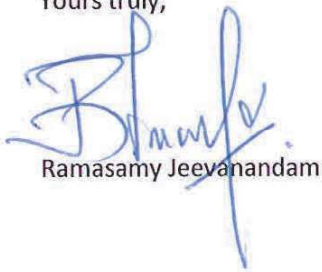 Yours truly,
Ramasamy Jeevanandam